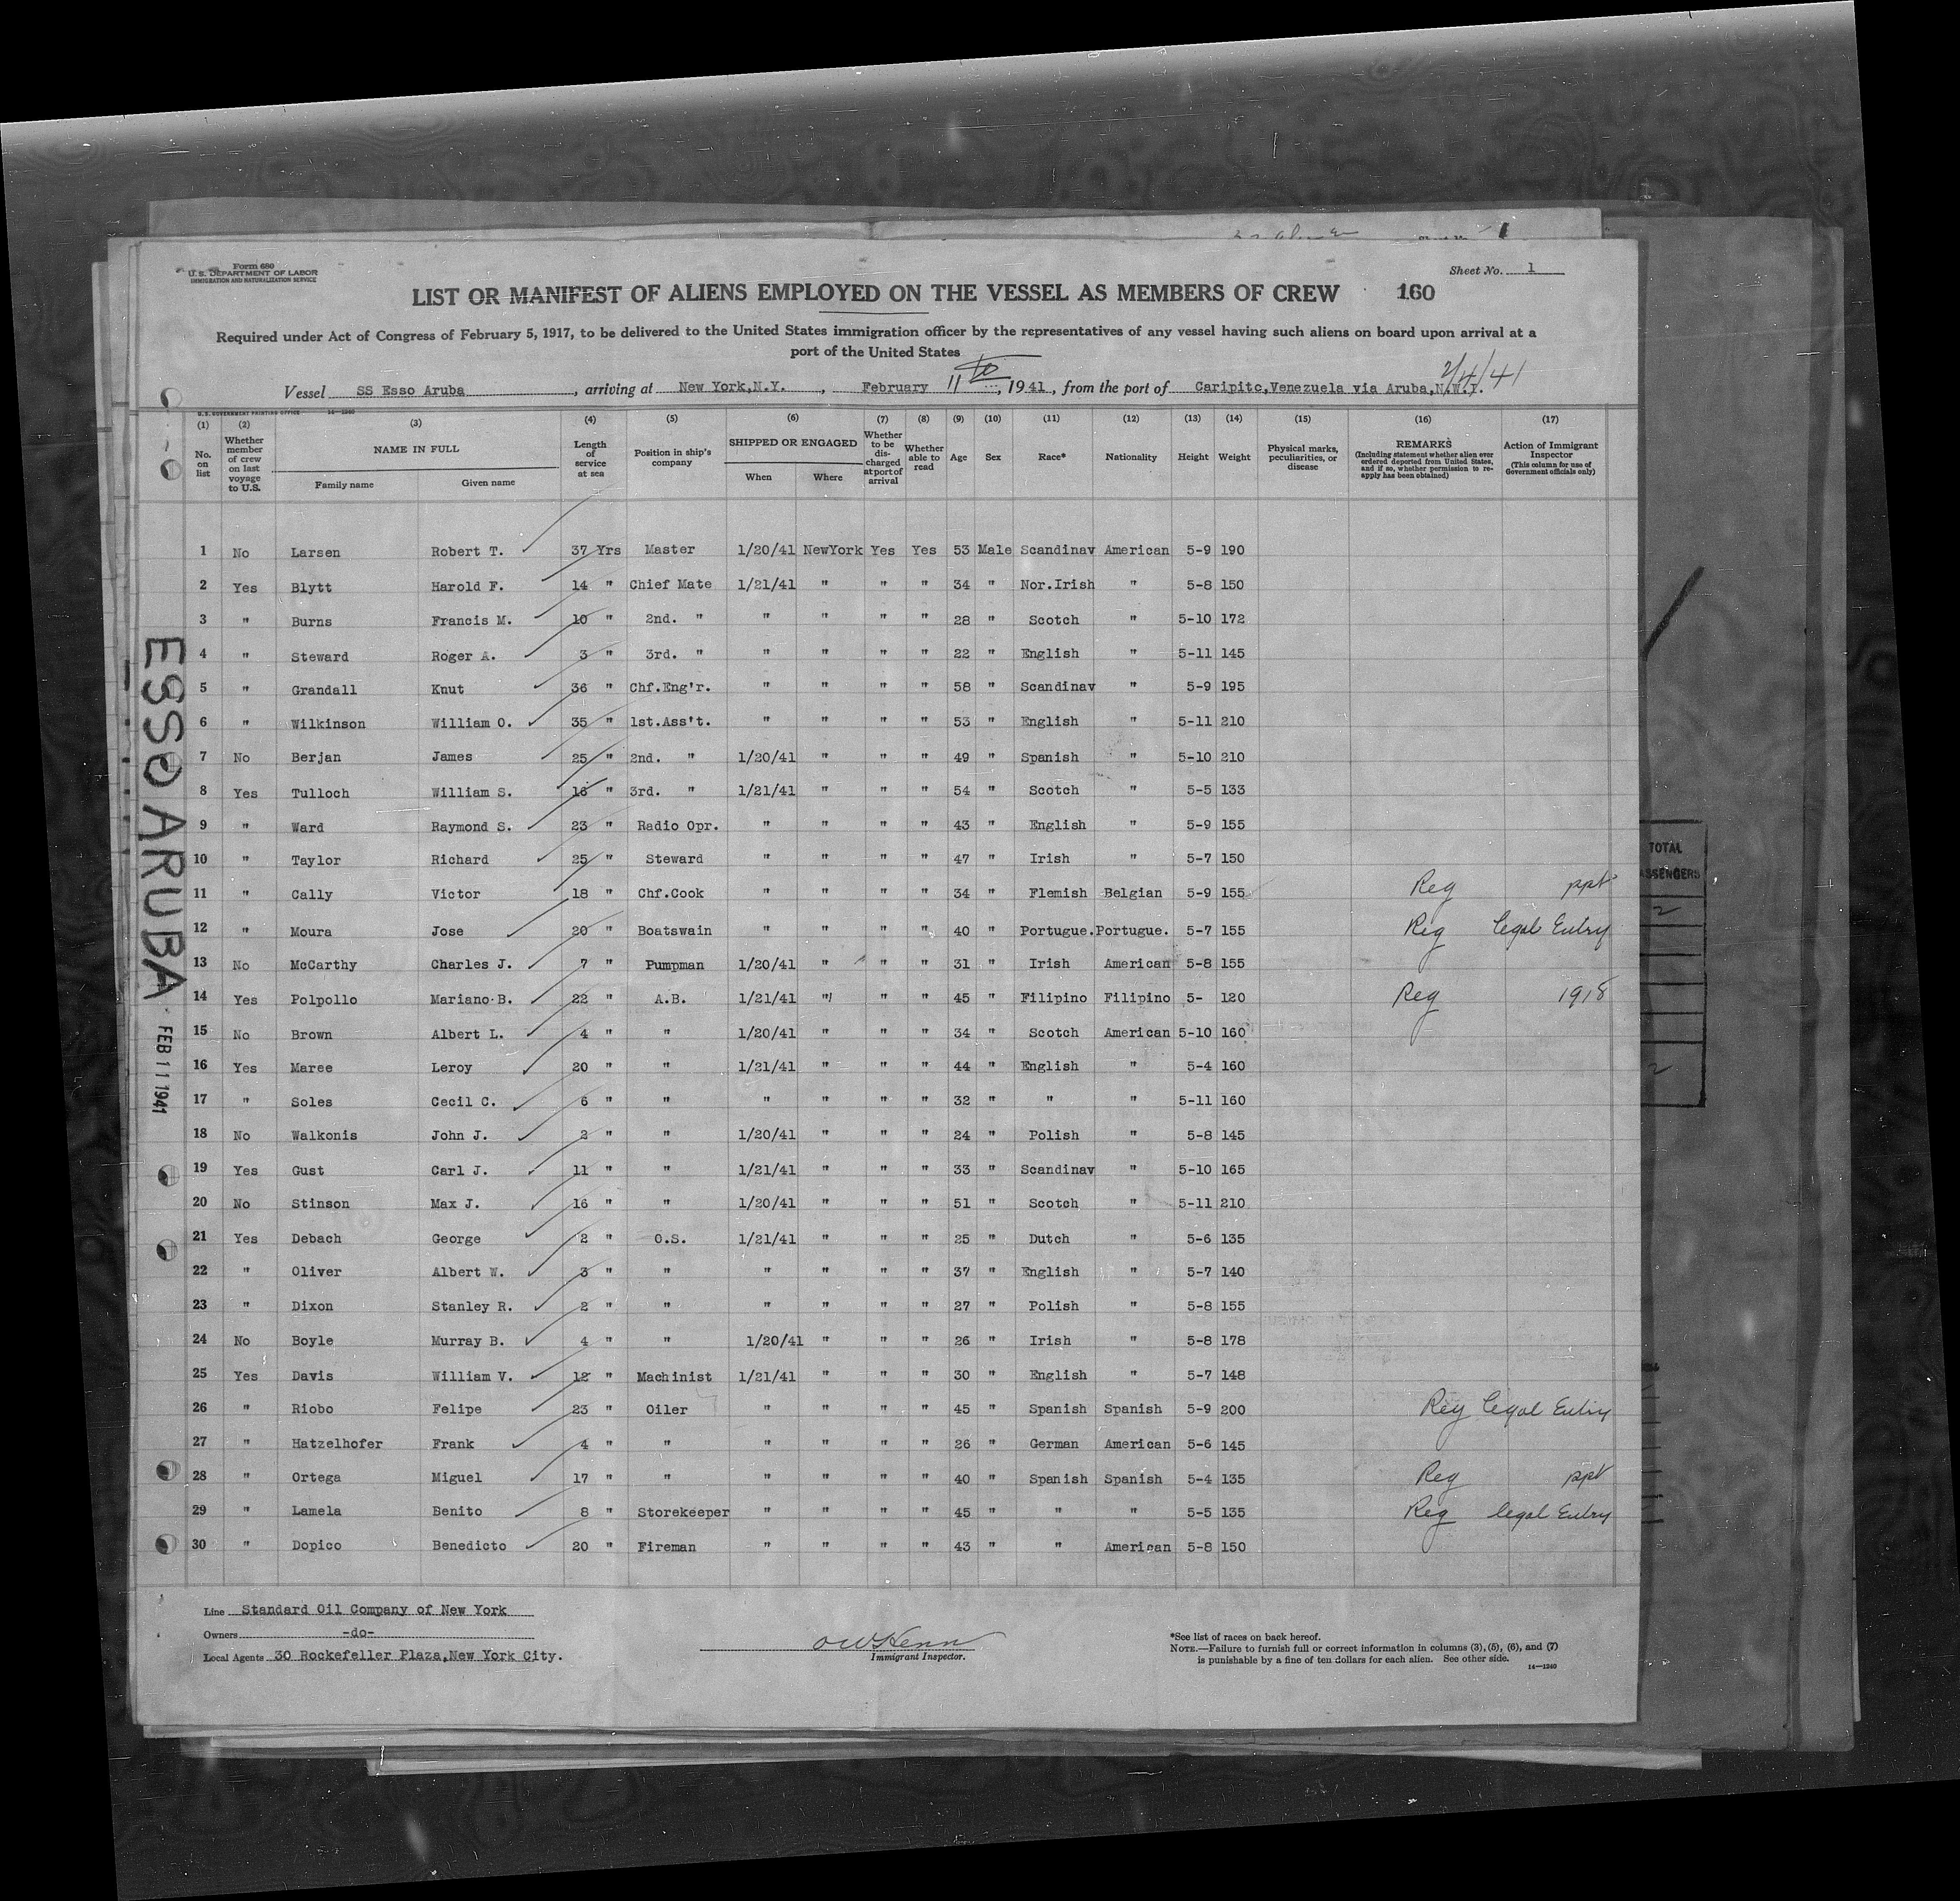 Form 680
U.S. DEPARTMENT OF LABOR
IMMIGRATION AND NATURALIZATION SERVICE
Sheet No. 1
LIST OR MANIFEST OF ALIENS EMPLOYED ON THE VESSEL AS MEMBERS OF CREW 160
Required under Act of Congress of February 5, 1917, to be delivered to the United States immigration officer by the representatives of any vessel having such aliens on board upon arrival at a
port of the United States
Vessel SS Esso Aruba, arriving at New York,N.Y., February 11th, 1941, from the port of Caripito,Venezuela via Aruba,N.W.I. 2/4/41
U.S. GOVERNMENT PRINTING OFFICE 14—1240
(1) No. on list (2) Whether member of crew on last voyage to U.S. (3) NAME IN FULL Family name Given name (4) Length of service at sea (5) Position in ship's company (6) SHIPPED OR ENGAGED When Where (7) Whether to be discharged at port of arrival (8) Whether able to read (9) Age (10) Sex (11) Race* (12) Nationality (13) Height (14) Weight (15) Physical marks, peculiarities, or disease (16) REMARKS (Including statement whether alien ever ordered deported from United States, and if so, whether permission to re-apply has been obtained) (17) Action of Immigrant Inspector (This column for use of Government officials only)
1 No Larsen Robert T. 37 Yrs Master 1/20/41 NewYork Yes Yes 53 Male Scandinav American 5-9 190
2 Yes Blytt Harold F. 14 " Chief Mate 1/21/41 " " " 34 " Nor.Irish " 5-8 150
3 " Burns Francis M. 10 " 2nd. " " " " " 28 " Scotch " 5-10 172
4 " Steward Roger A. 3 " 3rd. " " " " " 22 " English " 5-11 145
5 " Grandall Knut 36 " Chf.Eng'r. " " " " 58 " Scandinav " 5-9 195
6 " Wilkinson William O. 35 " 1st.Ass't. " " " " 53 " English " 5-11 210
7 No Berjan James 25 " 2nd. " 1/20/41 " " " 49 " Spanish " 5-10 210
8 Yes Tulloch William S. 16 " 3rd. " 1/21/41 " " " 54 " Scotch " 5-5 133
9 " Ward Raymond S. 23 " Radio Opr. " " " " 43 " English " 5-9 155
10 " Taylor Richard 25 " Steward " " " " 47 " Irish " 5-7 150
11 " Cally Victor 18 " Chf.Cook " " " " 34 " Flemish Belgian 5-9 155 Reg ppt
12 " Moura Jose 20 " Boatswain " " " " 40 " Portugue. Portugue. 5-7 155 Reg legal Entry
13 No McCarthy Charles J. 7 " Pumpman 1/20/41 " " " 31 " Irish American 5-8 155
14 Yes Polpollo Mariano B. 22 " A.B. 1/21/41 " " " 45 " Filipino Filipino 5- 120 Reg 1918
15 No Brown Albert L. 4 " " 1/20/41 " " " 34 " Scotch American 5-10 160
16 Yes Maree Leroy 20 " " 1/21/41 " " " 44 " English " 5-4 160
17 " Soles Cecil C. 6 " " " " " " 32 " " " 5-11 160
18 No Walkonis John J. 2 " " 1/20/41 " " " 24 " Polish " 5-8 145
19 Yes Gust Carl J. 11 " " 1/21/41 " " " 33 " Scandinav " 5-10 165
20 No Stinson Max J. 16 " " 1/20/41 " " " 51 " Scotch " 5-11 210
21 Yes Debach George 2 " O.S. 1/21/41 " " " 25 " Dutch " 5-6 135
22 " Oliver Albert W. 3 " " " " " " 37 " English " 5-7 140
23 " Dixon Stanley R. 2 " " " " " " 27 " Polish " 5-8 155
24 No Boyle Murray B. 4 " " 1/20/41 " " " 26 " Irish " 5-8 178
25 Yes Davis William V. 12 " Machinist 1/21/41 " " " 30 " English " 5-7 148
26 " Riobo Felipe 23 " Oiler " " " " 45 " Spanish Spanish 5-9 200 Reg legal Entry
27 " Hatzelhofer Frank 4 " " " " " " 26 " German American 5-6 145
28 " Ortega Miguel 17 " " " " " " 40 " Spanish Spanish 5-4 135 Reg ppt
29 " Lamela Benito 8 " Storekeeper " " " " 45 " " " 5-5 135 Reg legal Entry
30 " Dopico Benedicto 20 " Fireman " " " " 43 " " American 5-8 150
ESSO ARUBA FEB 11 1941
TOTAL
2
2
Line Standard Oil Company of New York
Owners -do-
Local Agents 30 Rockefeller Plaza,New York City.
Immigrant Inspector.
*See list of races on back hereof.
NOTE.—Failure to furnish full or correct information in columns (3), (5), (6), and (7)
is punishable by a fine of ten dollars for each alien. See other side.
14—1240